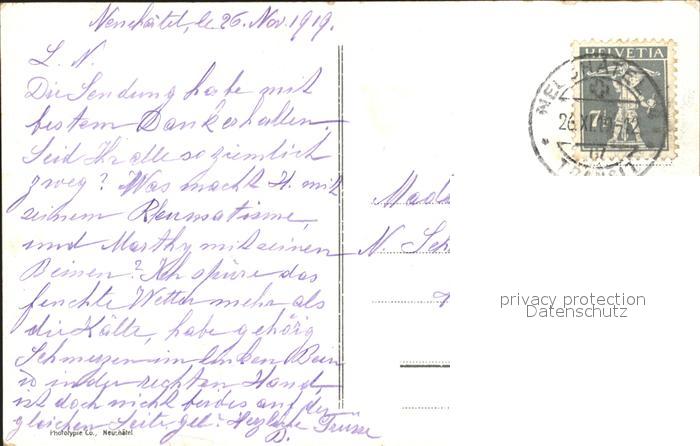 Neuchâtel, le 26. Nov. 1919.
L. N.
Die Sendung habe mit
bestem Dank erhalten.
Seid Ihr alle so ziemlich
zweg? Was macht H. mit
seinem Rheumatisme,
und Marthy mit seinen
Beinen? Ich spüre das
feuchte Wetter mehr als
die Kälte, habe gehörig
Schmerzen im linken Bein
u in der rechten Hand,
ist doch nicht beides auf der
gleichen Seite, gel! Herzliche Grüsse
D.
Phototypie Co., Neuchâtel
HELVETIA
7½
NEUCHÂTEL
26.XI.19.-12
TRANSIT
Mad
N. Sch
privacy protection
Datenschutz